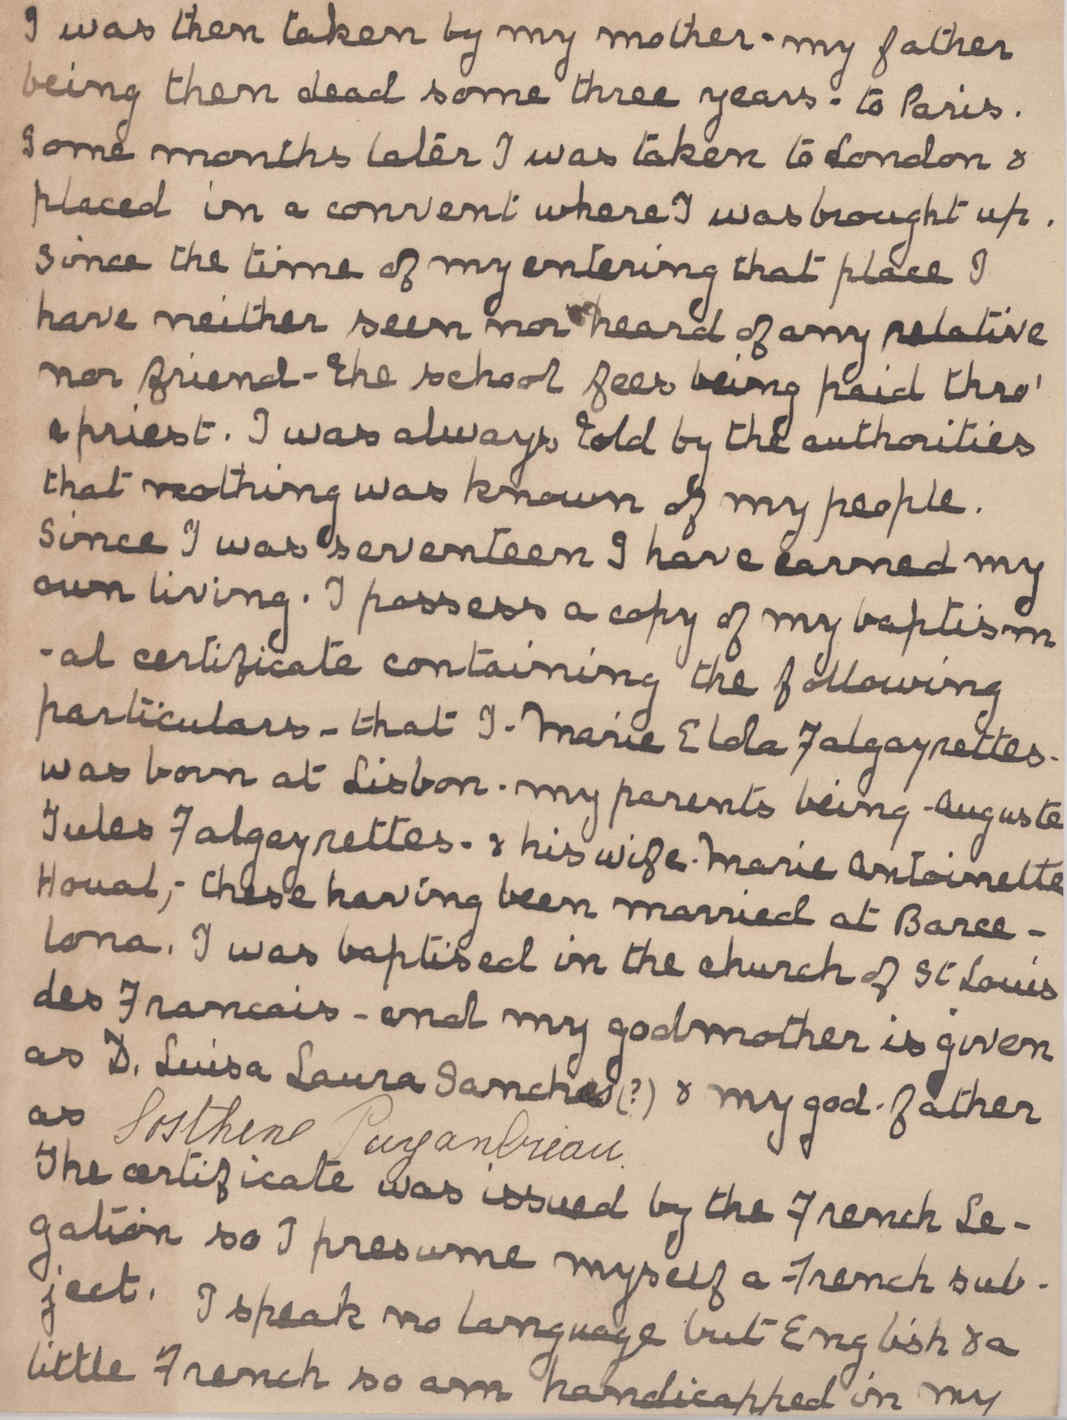 I was then taken by my mother - my father
being then dead some three years - to Paris.
Some months later I was taken to London &
placed in a convent where I was brought up.
Since the time of my entering that place I
have neither seen nor heard of any relative
nor friend - the school fees being paid thro'
a priest. I was always told by the authorities
that nothing was known of my people.
Since I was seventeen I have earned my
own living. I possess a copy of my baptism
-al certificate containing the following
particulars - that I - Marie Elda Falgayrettes -
was born at Lisbon - my parents being - Auguste
Jules Falgayrettes - & his wife - Marie Antoinette
Houal, - these having been married at Barce -
lona. I was baptised in the church of St Louis
des Francais - and my godmother is given
as D. Luisa Laura Sanches (?) & my god-father
as Sosthene Puyandreau.
The certificate was issued by the French Le -
gation so I presume myself a French sub -
ject. I speak no language but English & a
little French so am handicapped in my